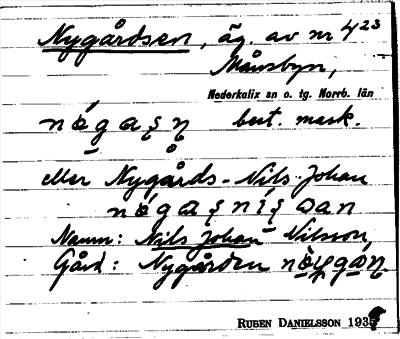 Nygårdsen, äg. av nr 4²³
Månsbyn,
Nederkalix sn o. tg. Norrb. län
best. mask.
eller Nygårds-Nils-Johan
Namn: Nils Johan Nilsson,
Gård: Nygården
RUBEN DANIELSSON 193